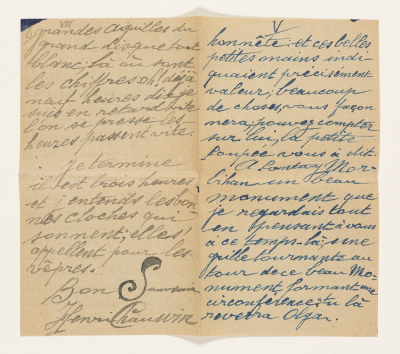 VIII
grandes aiguilles du
grand disque tout
blanc, là où sont
les chiffres oh! déjà
neuf heures dieu je
suis en retard vite
l'on se presse les
heures passent vite.
Je termine
il est trois heures
et j'entends les bon
nes cloches qui
sonnent, elles
appellent pour les
vêpres.
Bon Souvenir
Henri
V
honnête: et ces belles
petites mains indi-
quaient précisément
valeur; beaucoup
de choses, vous façon
nera, pouvez compter
sur lui, la petite
poupée vous a dit.
A Mor-
bihan un beau
monument que
je regardais tout
en pensant à vous
à ce temps-là; une
quille tournante au
tour de ce beau Mo-
nument formant une
circonférence; tu là
reverra Olga.